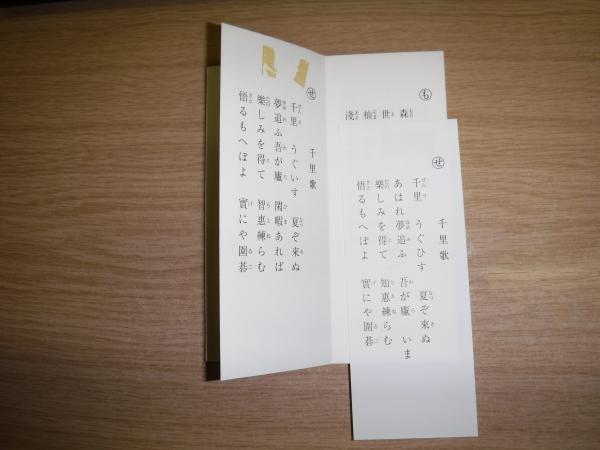 も
森
世
杣
淺
せ
千里歌
千里　うぐひす　夏ぞ來ぬ
あはれ夢追ふ　吾が廬　いま
樂しみを得て　知惠練らむ
悟るもへぼよ　實にや圍碁
せ
千里歌
千里　うぐいす　夏ぞ來ぬ
夢追ふ吾が廬　閑暇あれば
樂しみを得て　智惠練らむ
悟るもへぼよ　實にや圍碁